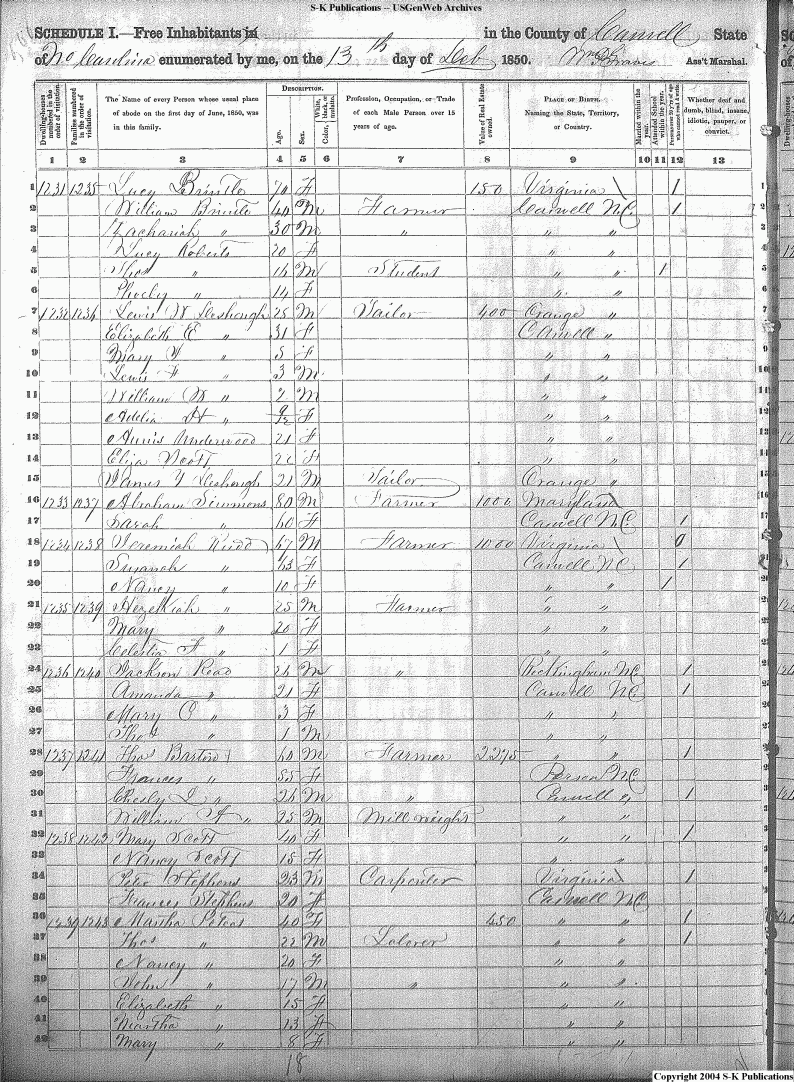 S-K Publications -- USGenWeb Archives
SCHEDULE I.—Free Inhabitants in in the County of Caswell State
of No Carolina enumerated by me, on the 13th day of Deb 1850. Ass't Marshal.
Dwelling-houses numbered in the order of visitation.
Families numbered in the order of visitation.
The Name of every Person whose usual place of abode on the first day of June, 1850, was in this family.
DESCRIPTION.
Age.
Sex.
White, black, or mulatto.
Color,
Profession, Occupation, or Trade of each Male Person over 15 years of age.
Value of Real Estate owned.
PLACE OF BIRTH. Naming the State, Territory, or Country.
Married within the year.
Attended School within the year.
Whether deaf and dumb, blind, insane, idiotic, pauper, or convict.
1 2 3 4 5 6 7 8 9 10 11 12 13
1 1231 1235 Lucy Brintle 70 F 150 Virginia 1 1
2 William Brintle 40 M Farmer Caswell N.C. 1 2
3 Zachariah " 30 M " " " 3
4 Lucy Roberts 20 F " " 4
5 Thos " 16 M Student " " 1 5
6 Phoeby " 14 F " " 6
7 1232 1236 Lewis W 28 M Tailor 400 Orange " 7
8 Elizabeth E " 31 F Caswell " 8
9 Mary " 5 F " " 9
10 Lewis F " 3 M " " 10
11 William W " 2 M " " 11
12 Adelia H " 9/12 F " " 12
13 Annis Underwood 21 F " " 13
14 Eliza Scott F " " 14
15 James Y 21 M Tailor Orange " 15
16 1233 1237 Abraham Simmons 80 M Farmer 1000 Maryland 16
17 Sarah " 60 F Caswell N.C. 1 17
18 1234 1238 Jeremiah Rudd 67 M Farmer 1000 Virginia 18
19 Susanah " 63 F Caswell N.C. 1 19
20 Nancy " 10 F " " 1 20
21 1235 1239 Hezekiah " 25 M Farmer " " 21
22 Mary " 20 F " " 22
23 Celestia F " 1 F " " 23
24 1236 1240 Jackson Read 26 M " Rockingham N.C. 1 24
25 Amanda " 21 F Caswell N.C. 1 25
26 Mary C " 3 F " " 26
27 Thos " 1 M " " 27
28 1237 1241 Thos Barton 60 M Farmer 2275 " " 1 28
29 Frances " 55 F Person N.C. 29
30 Chesly " 26 M " Caswell " 1 30
31 William A " 25 M Mill wright " " 31
32 1238 1242 Mary Scott 40 F " " 1 32
33 Nancy Scott 15 F " " 33
34 Peter Stephens 23 M Carpenter Virginia 1 34
35 Frances Stephens 20 F Caswell N.C. 35
36 1239 1243 Martha Peters 40 F 450 " " 1 36
37 Thos " 22 M Laborer " " 1 37
38 Nancy " 20 F " " 38
39 John " 17 M " " " 39
40 Elizabeth " 15 F " " 40
41 Martha " 13 F " " 41
42 Mary " 8 F " " 42
18
Copyright 2004 S-K Publications